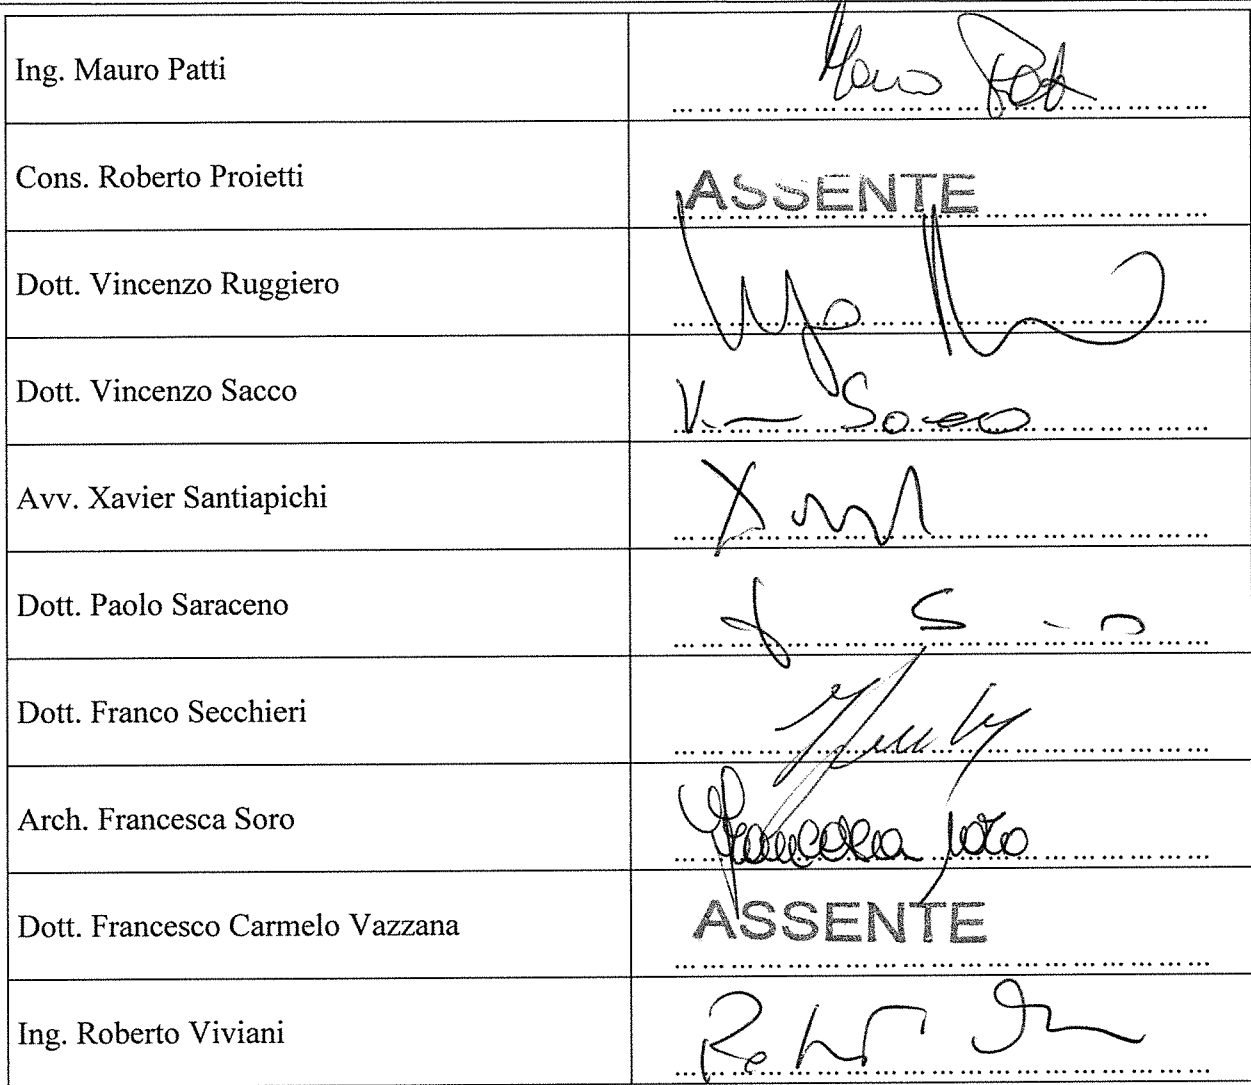 Ing. Mauro Patti
Cons. Roberto Proietti ASSENTE
Dott. Vincenzo Ruggiero
Dott. Vincenzo Sacco
Avv. Xavier Santiapichi
Dott. Paolo Saraceno
Dott. Franco Secchieri
Arch. Francesca Soro Francesca Soro
Dott. Francesco Carmelo Vazzana ASSENTE
Ing. Roberto Viviani